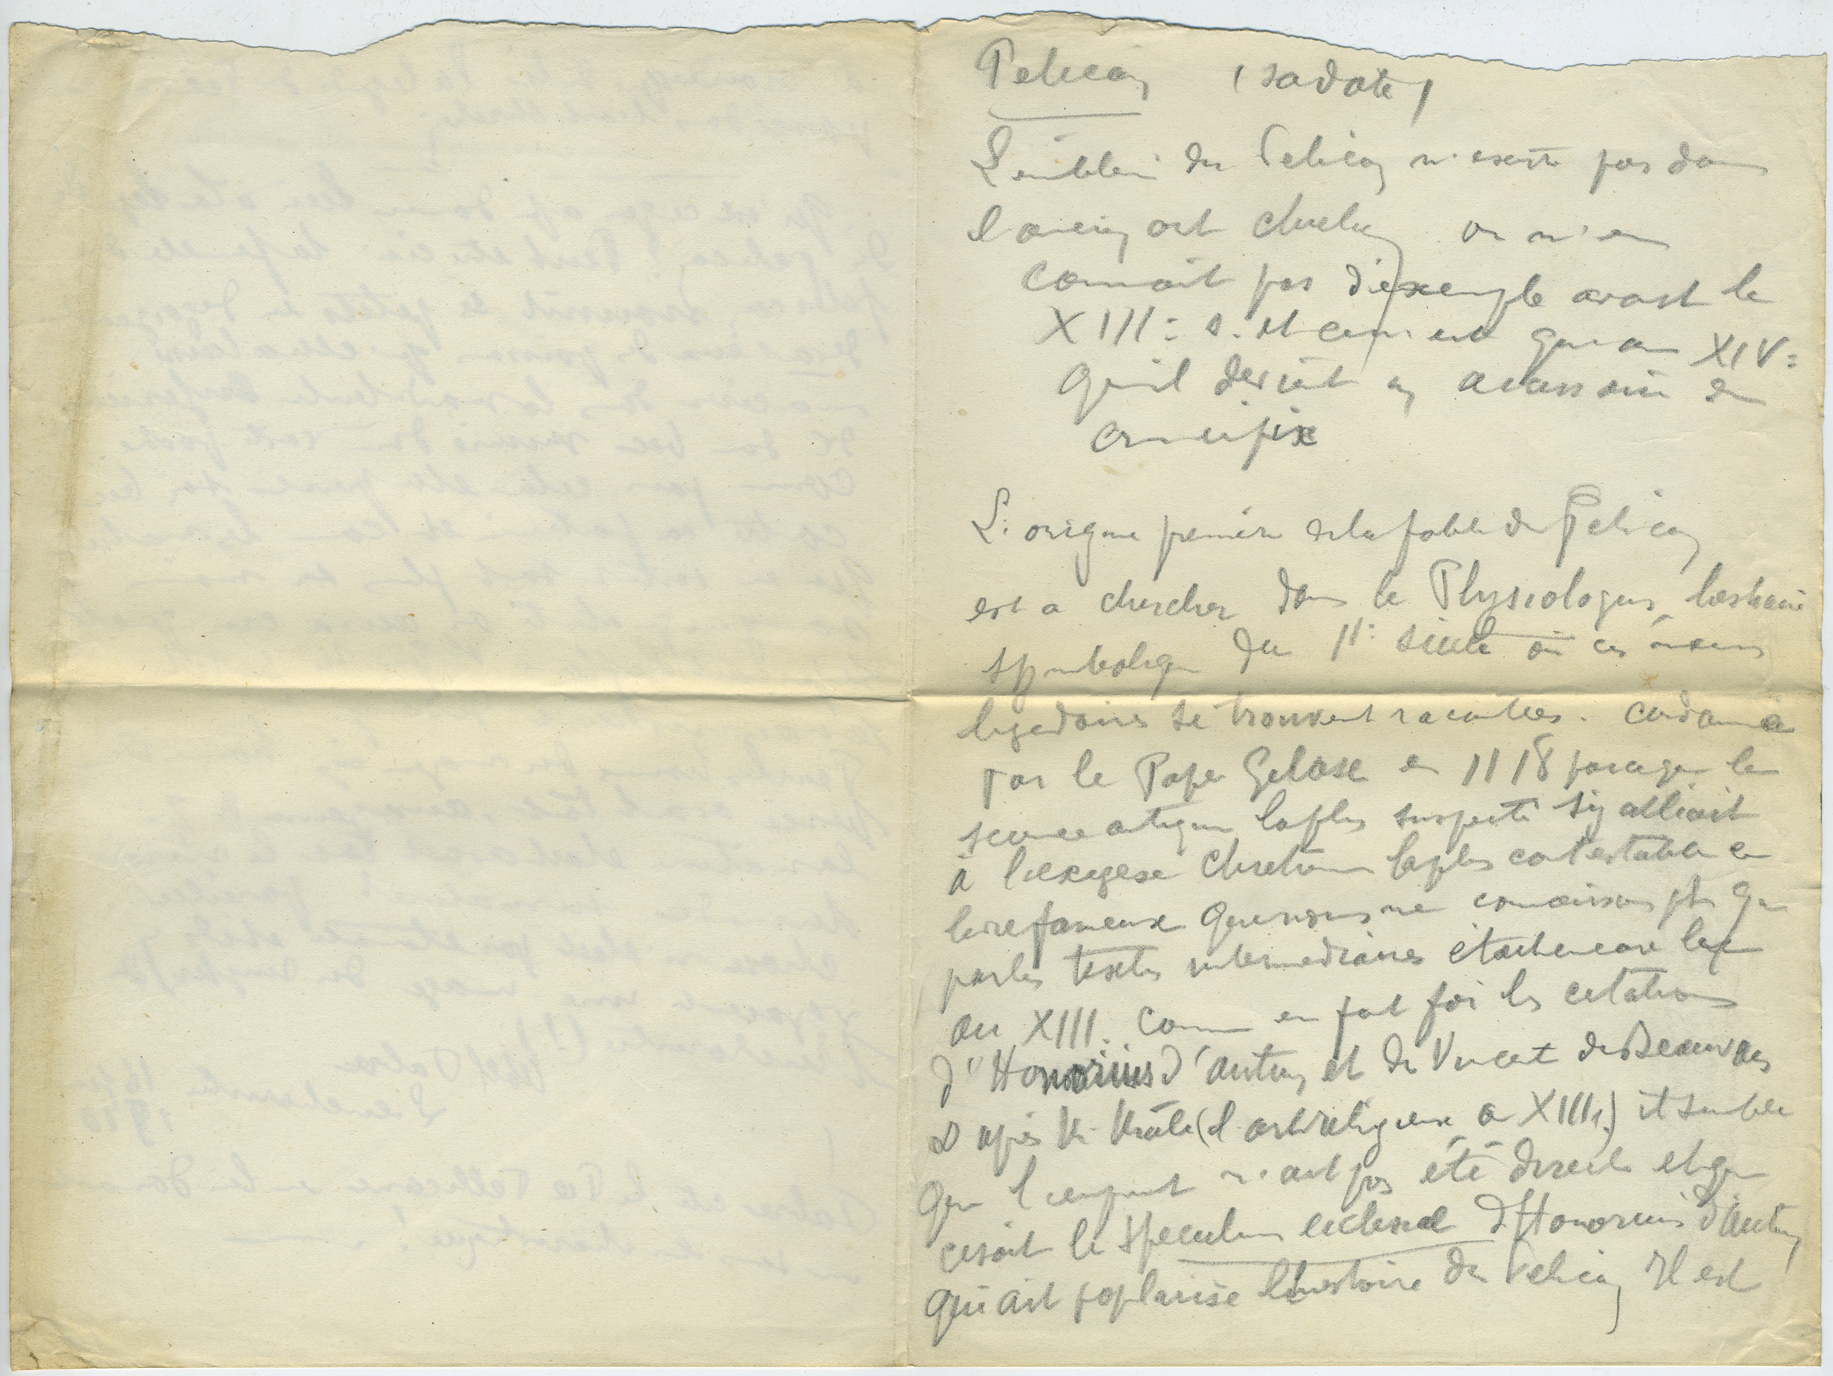 Pelican (sa date)
L'emblem du Pelican n'existe pas dans
l'ancien art chretien on n'en
connait pas d'exemple avant le
XIII: s. et ce n'est que au XIV:
qu'il devient un accessoire du
crucifix
L'origine première de la fable du Pelican
est a chercher dans le Physiologus, bestiaire
symbolique du II: siecle où ces
legendaires se trouvent racontées. condamné
par le Pape Gelase en 1118 parceque la
science antique la plus suspecte s'y alliait
à l'exegese chretienne la plus contestable ce
livre fameux que nous ne connaissons plus que
par les textes intermediaires etait encore lu
au XIII. comme en fait foi les citations
d'Honorius d'Autun et de Vincent de Beauvais
D'après Mâle (l'art religieux au XIII s.) il semble
que l'emprunt n'ait pas été direct et que
ce soit le Speculum ecclesiae d'Honorius d'Autun
qui ait poplarisé l'histoire du Pelican Il est